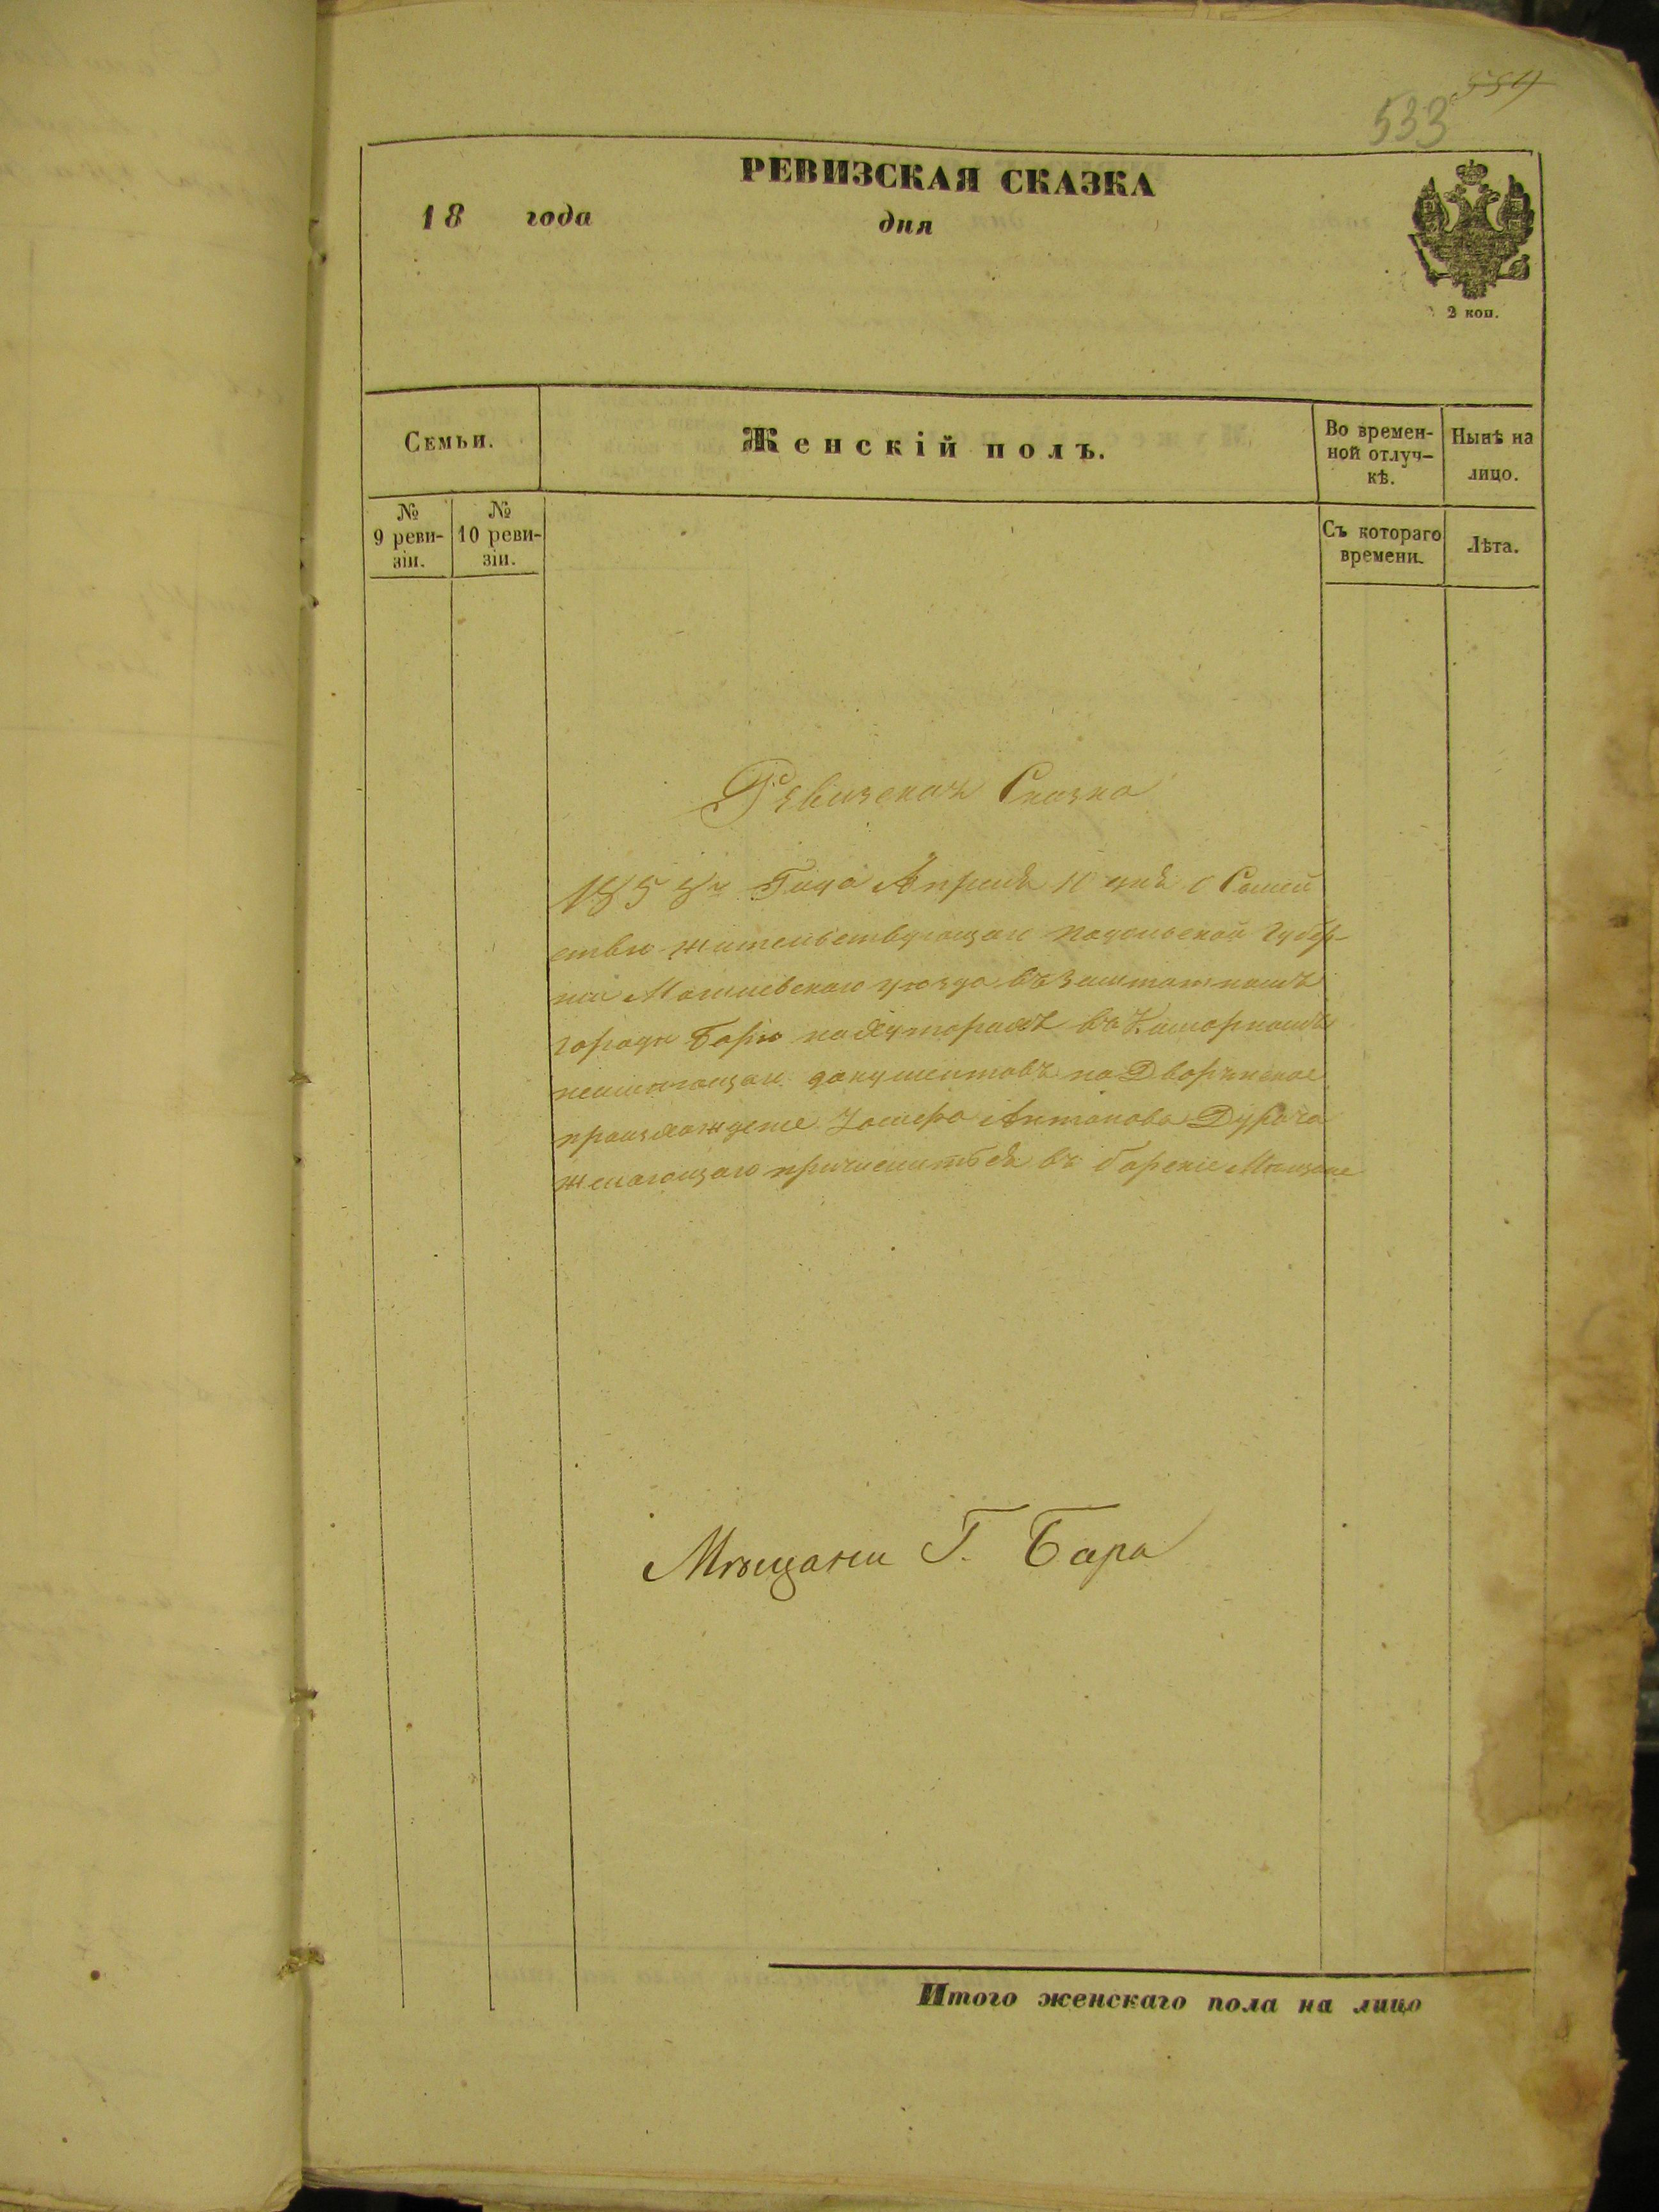 554
533
РЕВИЗСКАЯ СКАЗКА
18 года дня
2 коп.
Семьи.
Женскій полъ.
Во времен-
ной отлуч-
кѣ.
Нынѣ на
лицо.
№
9 реви-
зіи.
№
10 реви-
зіи.
Съ котораго
времени.
Лѣта.
Ревизская Сказка
1858 го Года Апреля 10 дня о Семей
стви жительствующаго Подольской Губер-
нии Могилевскаго уѣзда въ Заштатномъ
городѣ Барѣ на хуторахъ въ
неимѣющаго документовъ на Дворянское
происхождение Антонова
желающаго причислитьбся въ барские Мѣщане
Мѣщани Г. Бара
Итого женскаго пола на лицо